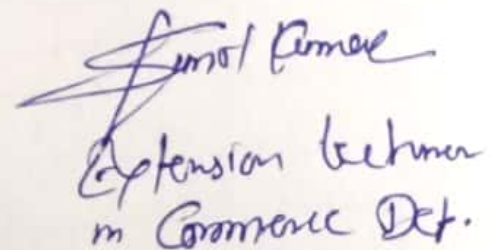 Kumar
Extension Lecturer
in Commerce Dept.